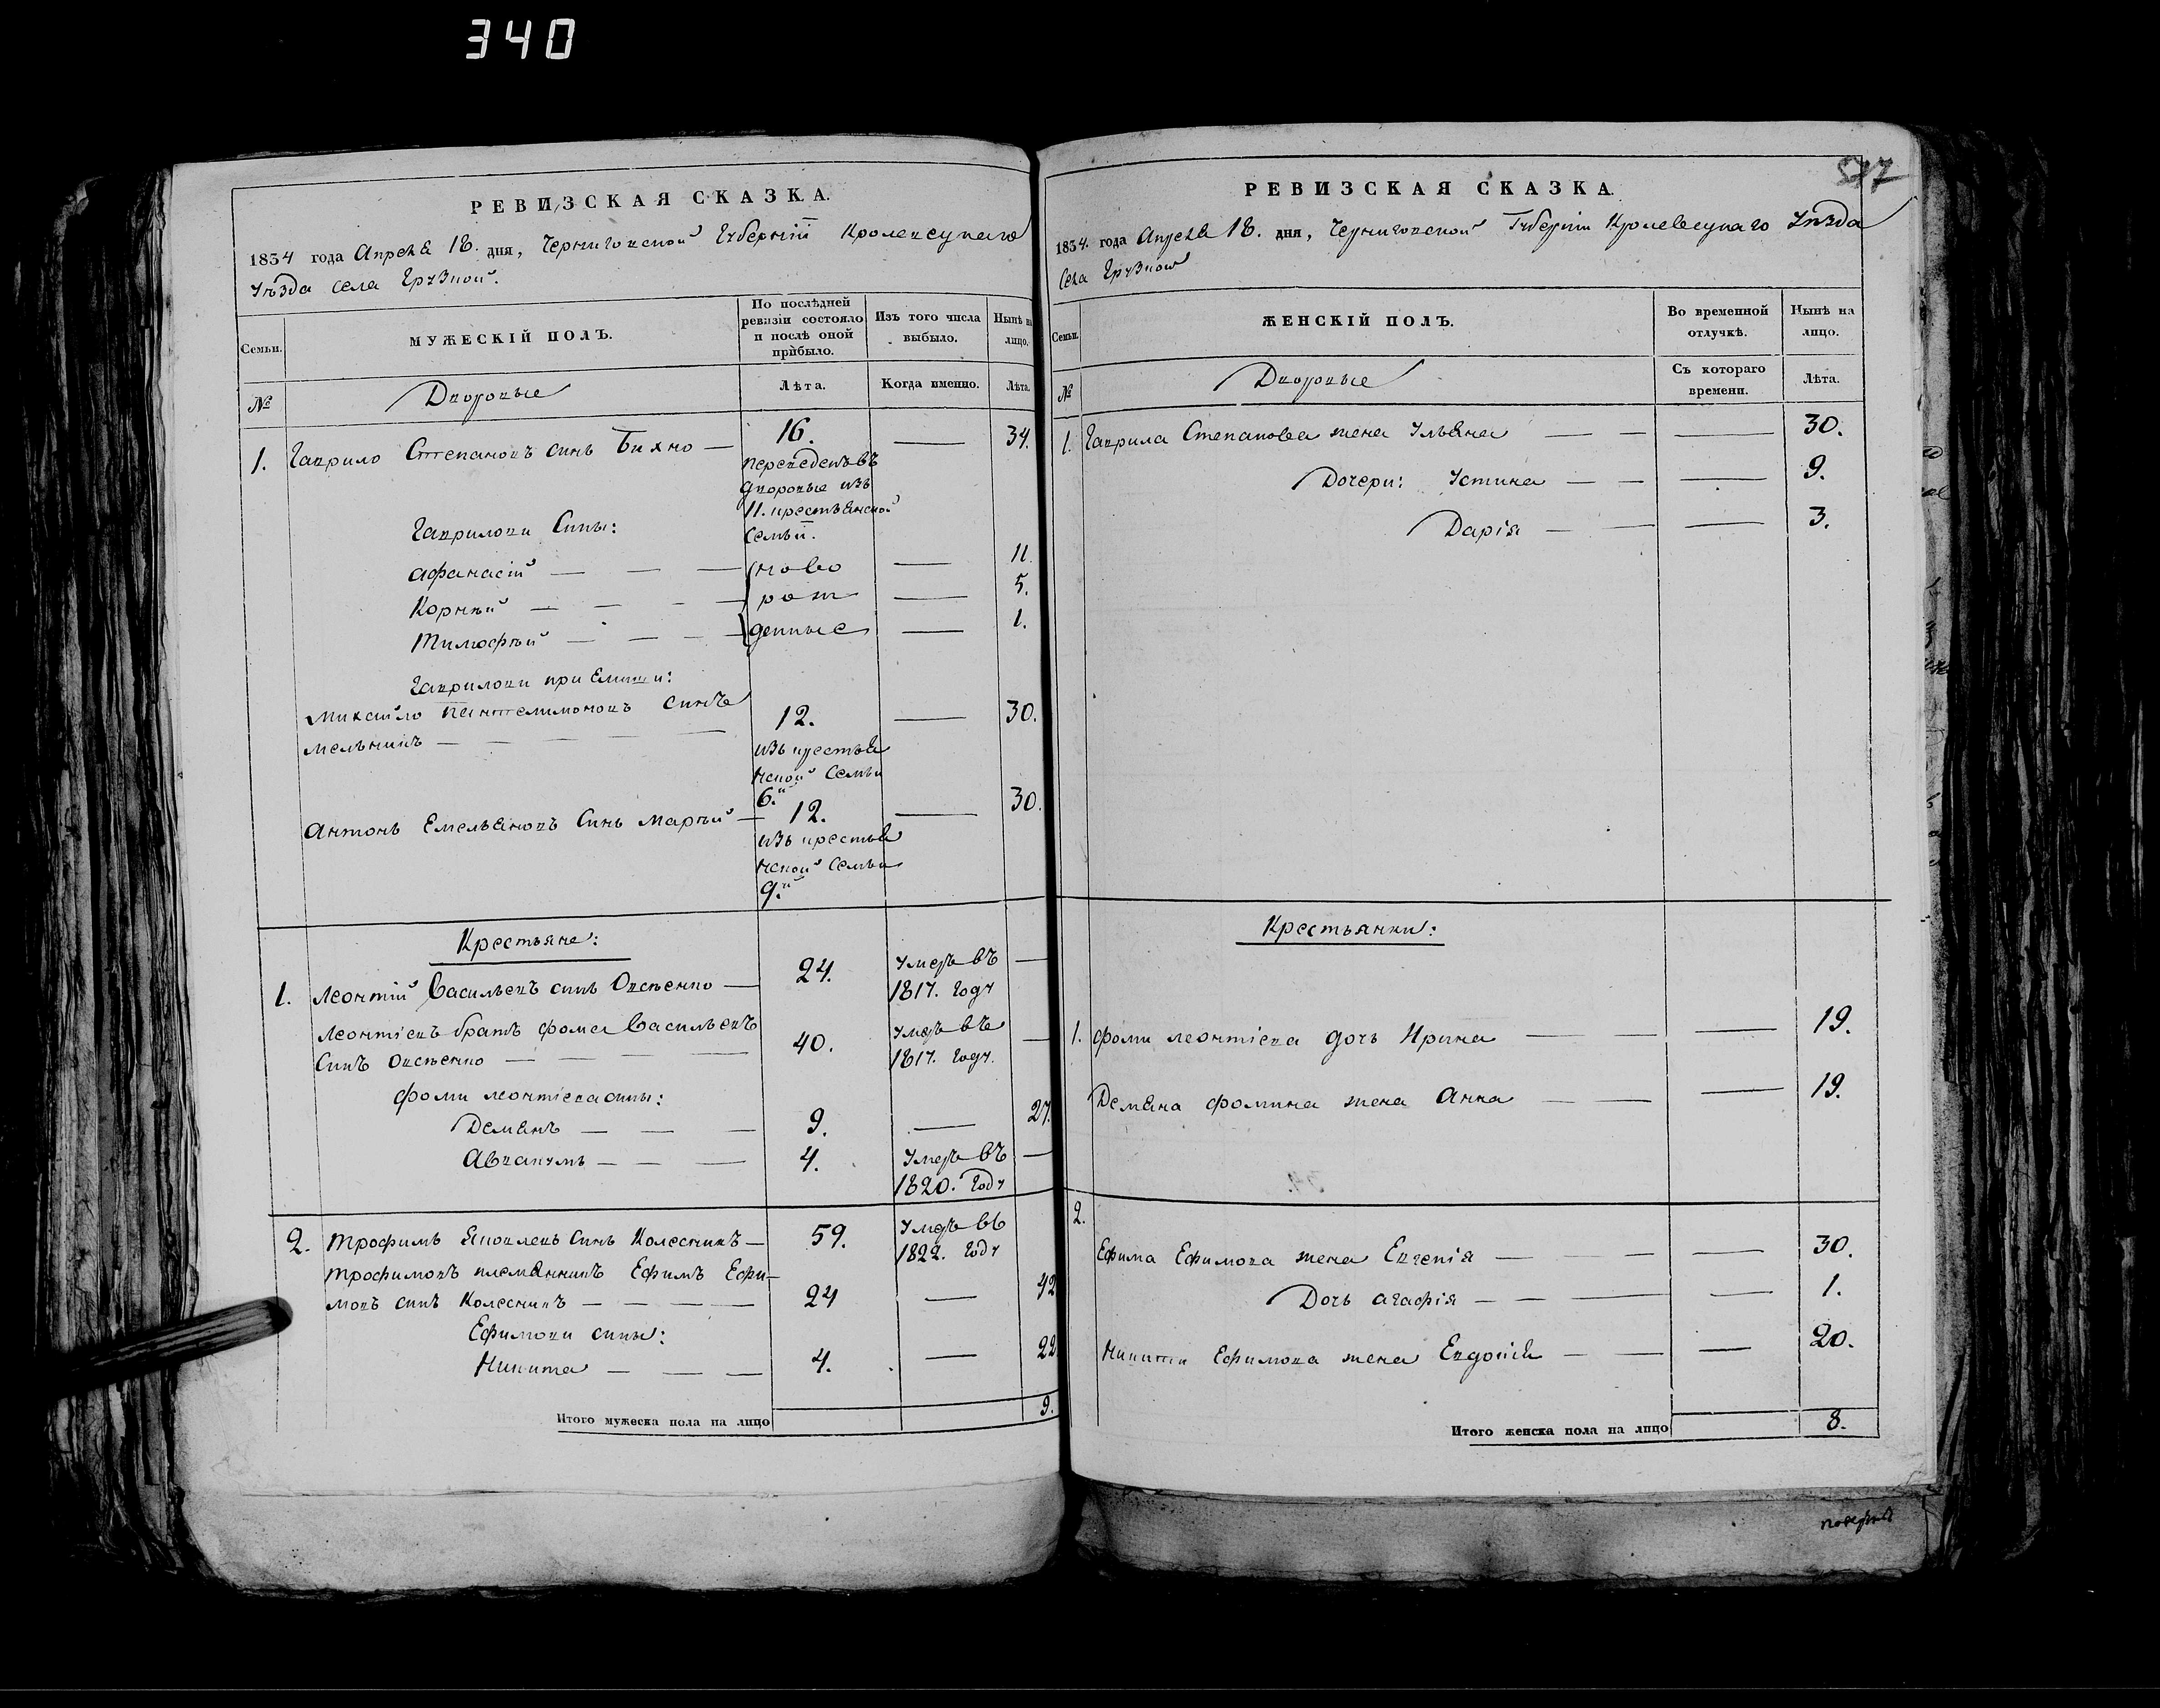 340
РЕВИЗСКАЯ СКАЗКА.
1834 года Апреля 18. дня, Черниговской Губерніи Кролевецкаго
уѣзда села Грузкой.
Семьи.
МУЖЕСКІЙ ПОЛЪ.
По послѣдней ревизіи состояло и послѣ оной прибыло.
Изъ того числа выбыло.
Нынѣ на лицо.
№
Дворовые
Лѣта.
Когда именно.
Лѣта.
1. Гаврило Степановъ синъ Бихно — 16. — 34.
переведенъ въ
дворовые изъ
11. крестьянской
семьи.
Гавриловы Сины:
Афанасій — — — ново — 11
Корнѣй — — — рож — 5.
Тимофѣй — — — денные — 1.
Гавриловы приемиши:
Михайло Пантелимоновъ синъ
Мельникъ — — — — 12. — 30.
изъ крестья
нской семьи
6.й
Антонъ Емельяновъ Синъ — 12. — 30.
изъ крестья
нской семьи
9.й
Крестьяне:
1. Леонтій Васильевъ синъ Овсѣенко — 24. Умеръ въ —
1817. году
Леонтіевъ братъ Фома Васильевъ
Синъ Овсѣенко — — — — 40. Умеръ въ —
1817. году.
Фоми Леонтіева сины:
Демянъ — — — 9. — 27.
Авакумъ — — — 4. Умеръ въ —
1820. году
2. Трофимъ Яковлевъ Синъ Колесникъ — 59. Умеръ въ
1822. году
Трофимовъ племянникъ Ефимъ Ефи-
мовъ синъ Колесникъ — — — — 24 — 42
Ефимови сины:
Никита — — — 4. — 22
Итого мужеска пола на лицо 9.
517
РЕВИЗСКАЯ СКАЗКА.
1834. года Апреля 18. дня, Черниговской Губерніи Кролевецкаго Уѣзда
Села Грузкой
Семьи.
ЖЕНСКІЙ ПОЛЪ.
Во временной отлучкѣ.
Нынѣ на лицо.
№
Дворовые
Съ котораго времени.
Лѣта.
1. Гаврила Степанова жена Ульяна — — — 30.
Дочери: Устина — — — 9.
Дарія — — — 3.
Крестьянки:
1. Фоми Леонтіева дочь Ирина — — — 19.
Демяна Фомина жена Анна — — — 19.
2.
Ефима Ефимова жена Евгенія — — — — 30.
Дочь Агафія — — — — 1.
Никити Ефимова жена Евдокія — — — 20.
Итого женска пола на лицо 8.